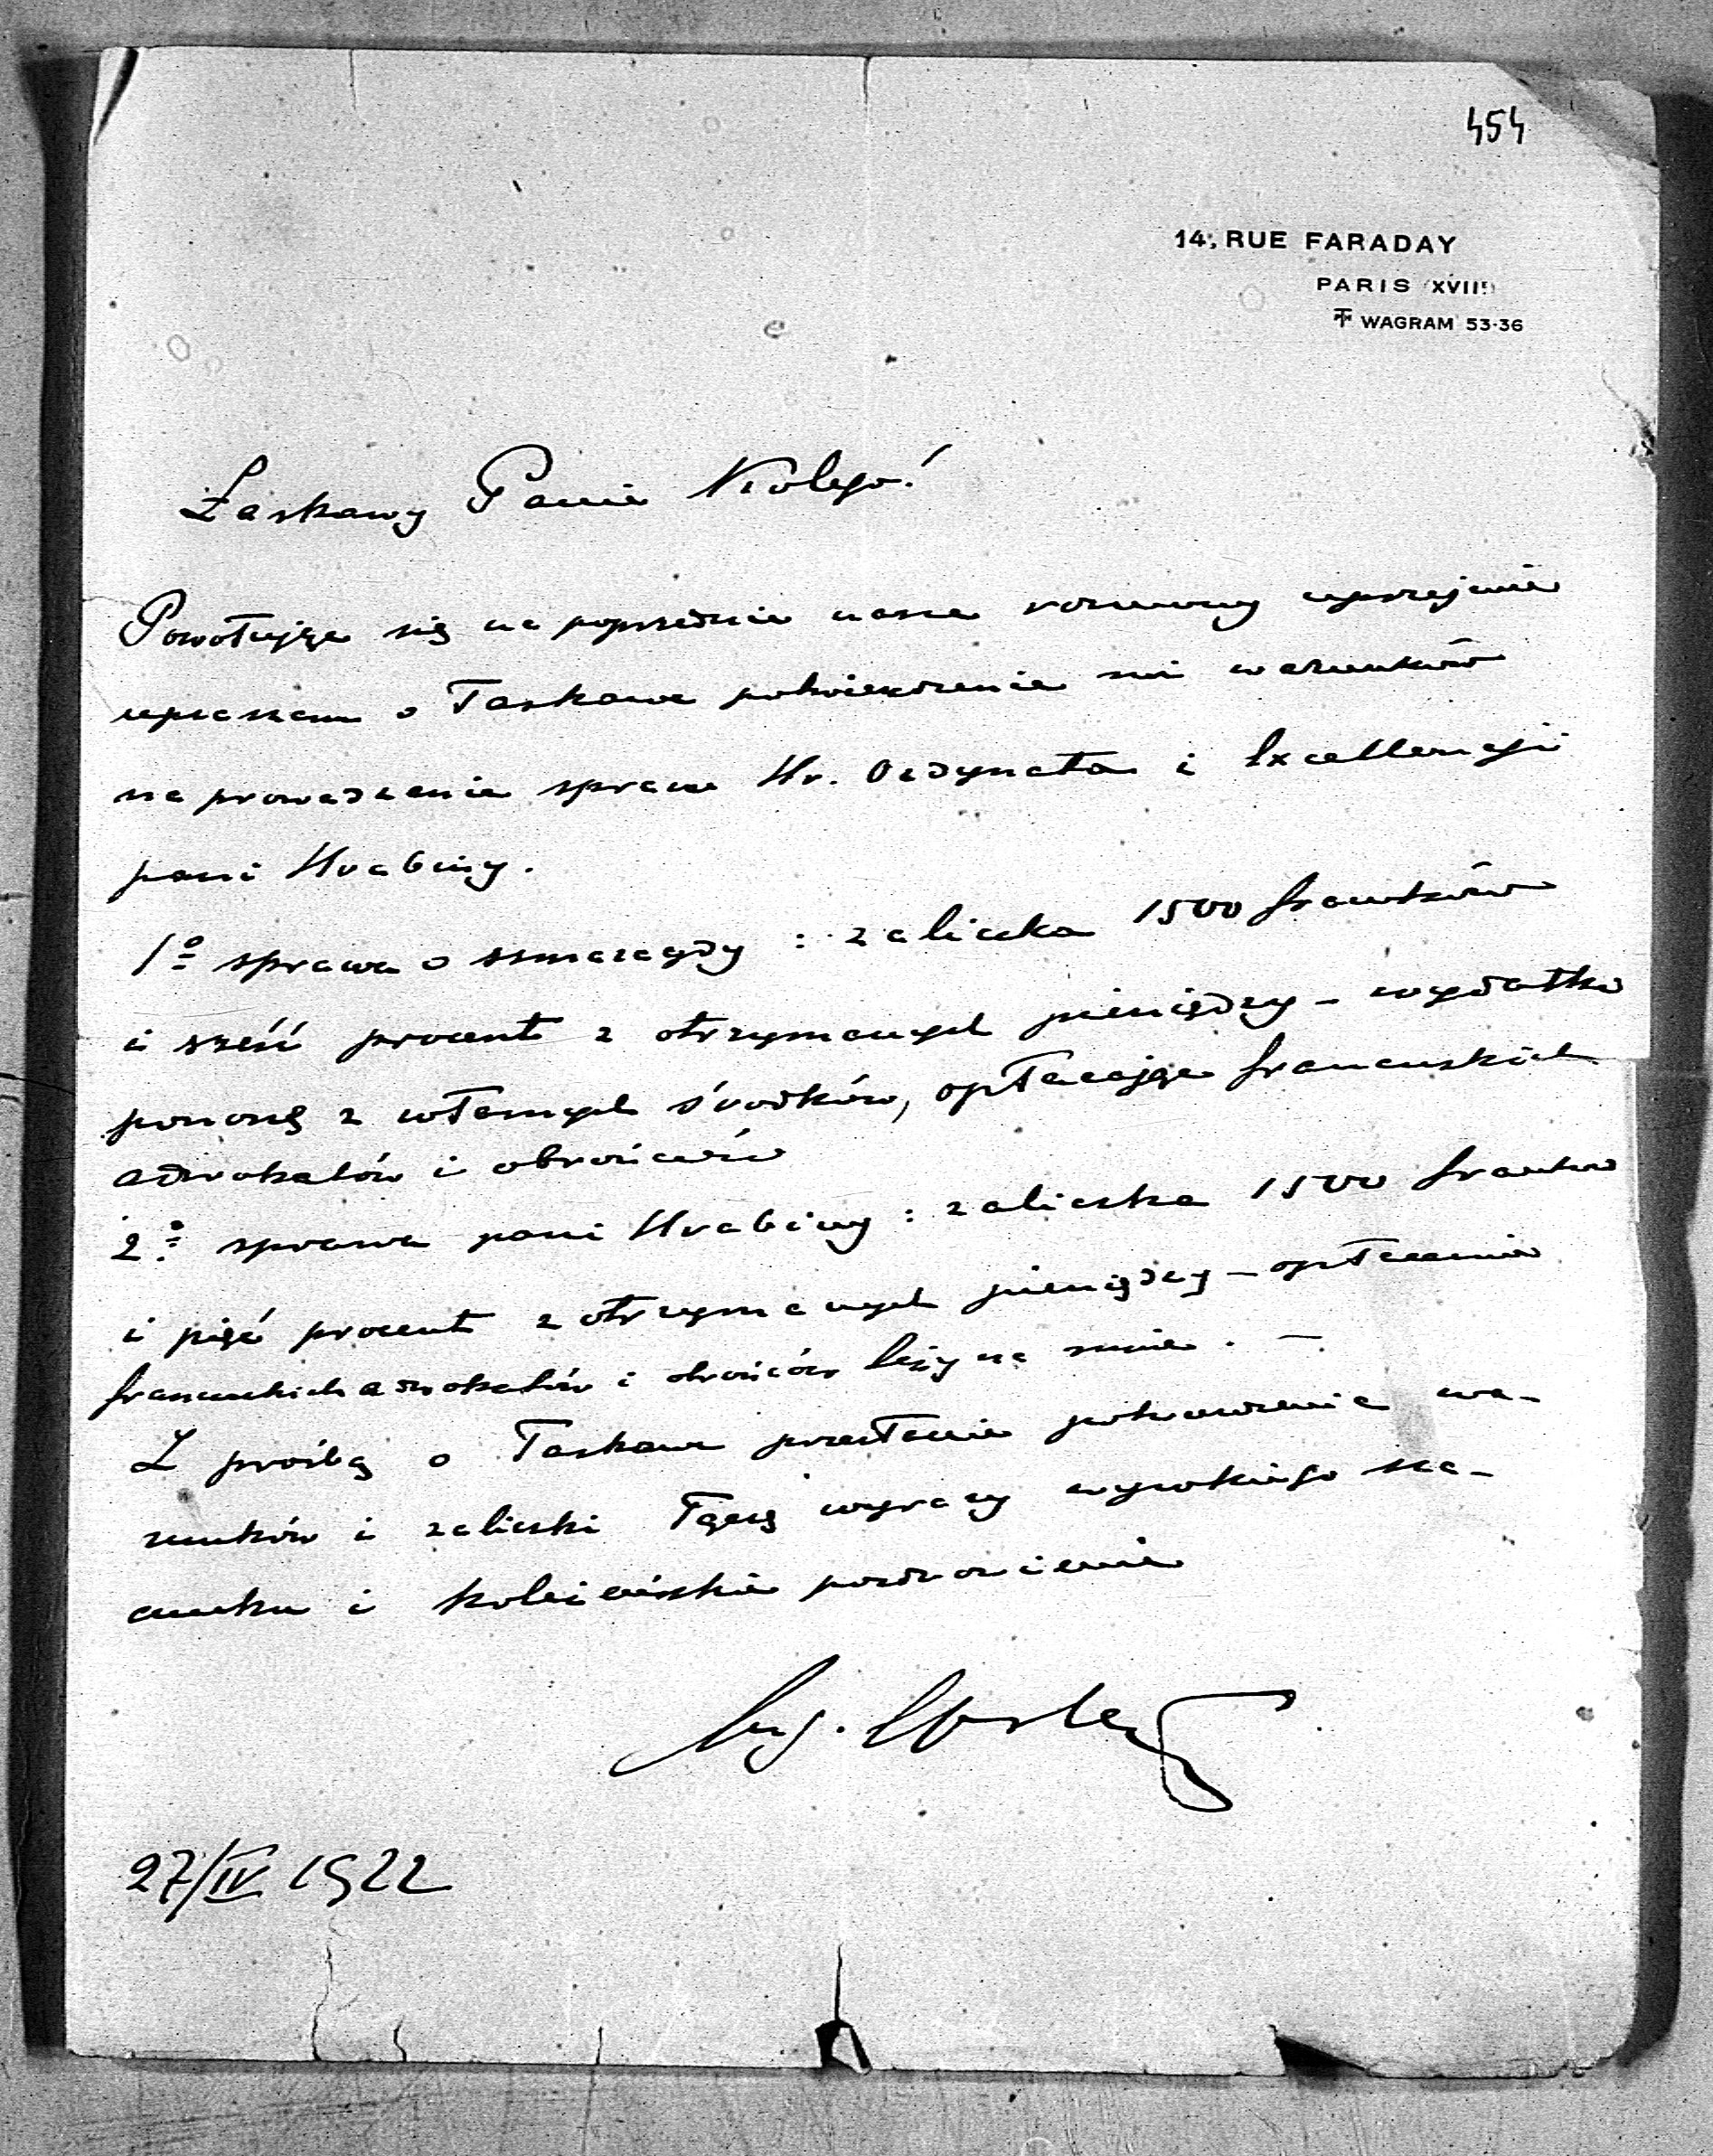 454
14, RUE FARADAY
PARIS (XVIIᵉ)
WAGRAM 53-36
Łaskawy Panie Kolego!
Powołując się na poprzednie nasze rozmowy uprzejmie
upraszam o łaskawe potwierdzenie mi warunków
na prowadzenie spraw Hr. Ordynata i Excellencji
pani Hrabiny.
1º sprawa o szmaragdy : zaliczka 1500 franków
i sześć procent z otrzymanych pieniędzy - wydatki
ponoszę z własnych środków, opłacając francuskich
adwokatów i obrońców
2º sprawa pani Hrabiny : zaliczka 1500 franków
i pięć procent z otrzymanych pieniędzy - opłacenie
francuskich adwokatów i obrońców leży na mnie . —
Z prośbą o łaskawe przesłanie potwierdzenia wa-
runków i zaliczki łączę wyrazy wysokiego sza-
cunku i koleżeńskie pozdrowienie
27/IV 1922